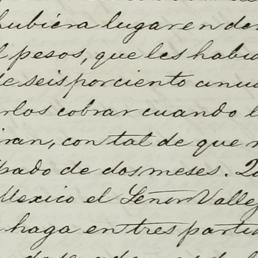 hubiera lugar en de
pesos, que les habia
e seis por ciento anua
rlos cobrar cuando l
ran, con tal de que n
pado de dos meses. 
Mexico el Señor Valle
haga en tres parti